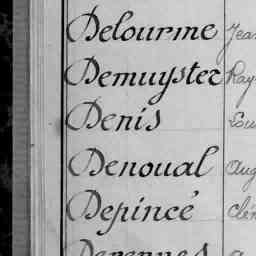 Delourme Jea
Demuyster Ray
Denis Lou
Denoual Aug
Depincé Clé
Derennes